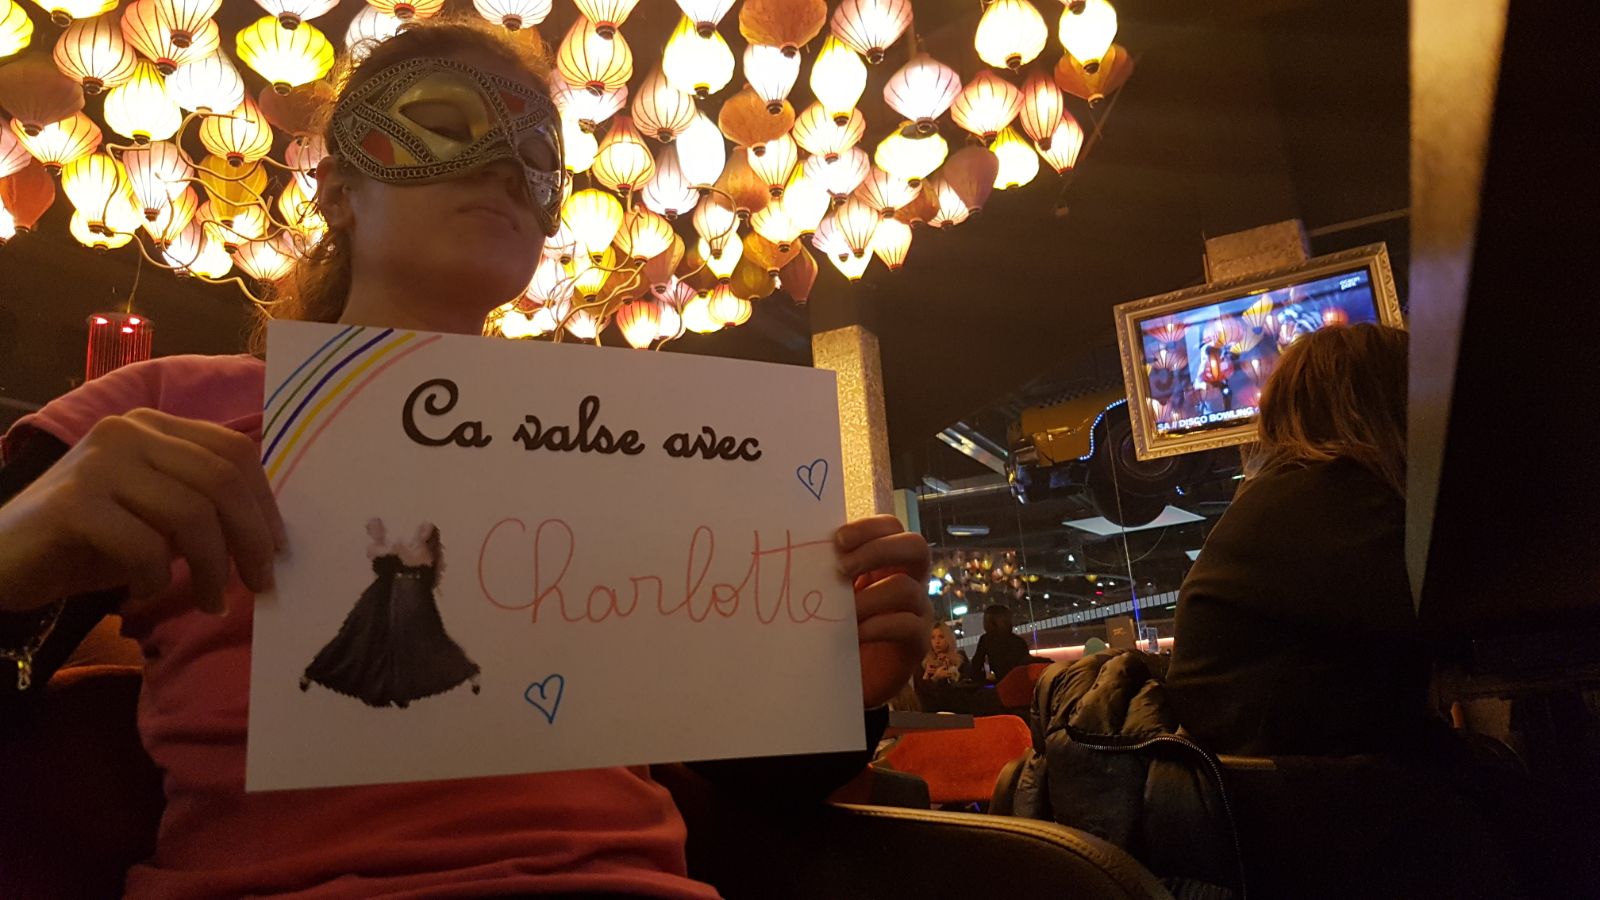 Ca valse avec
Charlotte
SA // DISCO BOWLING